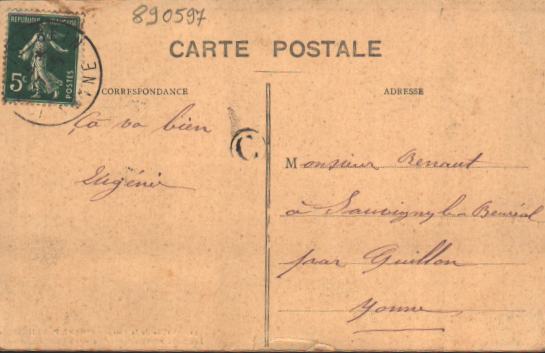 890597
REPUBLIQUE FRANÇAISE
5c
POSTES
NNE
CARTE POSTALE
CORRESPONDANCE
Ça va bien
Eugénie
C
ADRESSE
Monsieur Renaut
à Sauvigny le Beuréal
par Guillon
Yonne